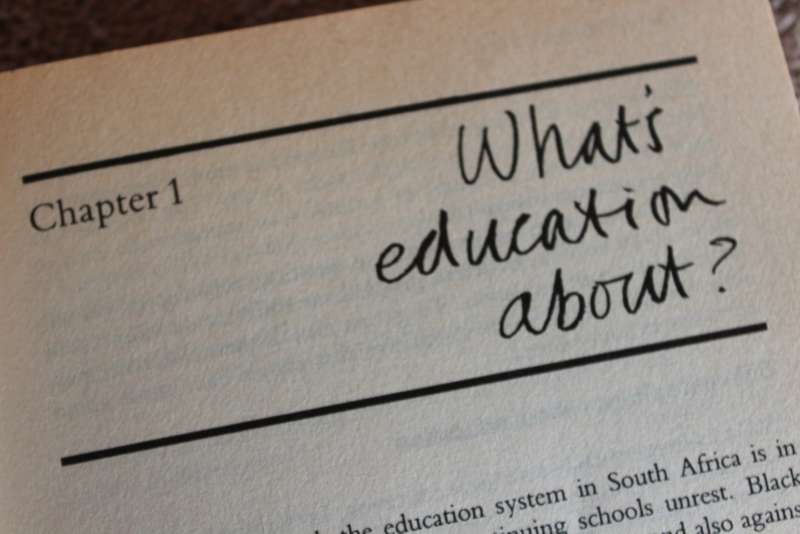 Chapter 1
What's
education
about?
the education system in South Africa is in
schools unrest. Black
also agains